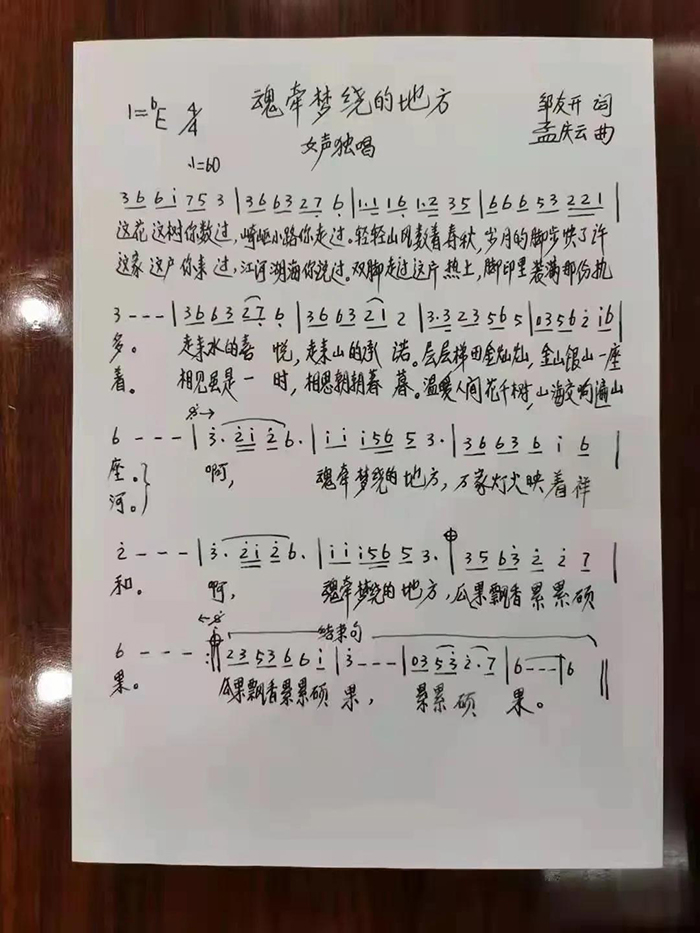 魂牵梦绕的地方
1=♭E 4/4
邹友开 词
女声独唱
孟庆云 曲
♩=60
3 6 6 i 7 5 3 | 3 6 6 3 2 7 6 | 1·1 1 6 1·2 3 5 | 6 6 6 5 3 2 2 1 |
这花这树你数过,崎岖小路你走过。轻轻山风数着春秋,岁月的脚步快了许
这家这户你来过,江河湖海你说过。双脚走过这片热土,脚印里装满那份执
3 - - - | 3 6 6 3 2 7 6 | 3 6 6 3 2 1 2 | 3·3 2 3 5 6 5 | 0 3 5 6 2 i 6 |
多。 走来水的喜悦,走来山的承诺。层层梯田金灿灿,金山银山一座
着。 相见虽是一时,相思朝朝暮暮。温暖人间花千树,山海交响遍山
6 - - - | 3· 2 i 2 6· | i i i 5 6 5 3· | 3 6 6 3 6 i 6 |
座。 啊, 魂牵梦绕的地方,万家灯火映着祥
河。
2 - - - | 3· 2 i 2 6· | i i i 5 6 5 3· | 3 5 6 3 2 2 7 |
和。 啊, 魂牵梦绕的地方,瓜果飘香累累硕
结束句
6 - - - :‖ 2 3 5 3 6 6 i | 3 - - - | 0 3 5 3 2·7 | 6 - - - | 6 ‖
果。 瓜果飘香累累硕果, 累累硕果。